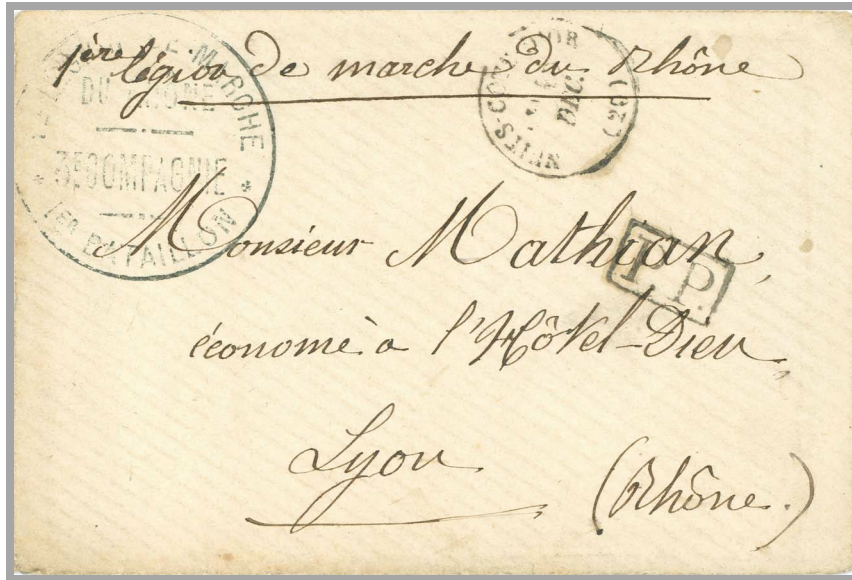 1ère légion de marche du Rhône
DE MARCHE
DU RHONE
3E COMPAGNIE
* 1ER BATAILLON *
NUITS-
DEC.
(20)
Monsieur Mathian,
économe à l'Hôtel-Dieu,
P.P.
Lyon
(Rhône.)